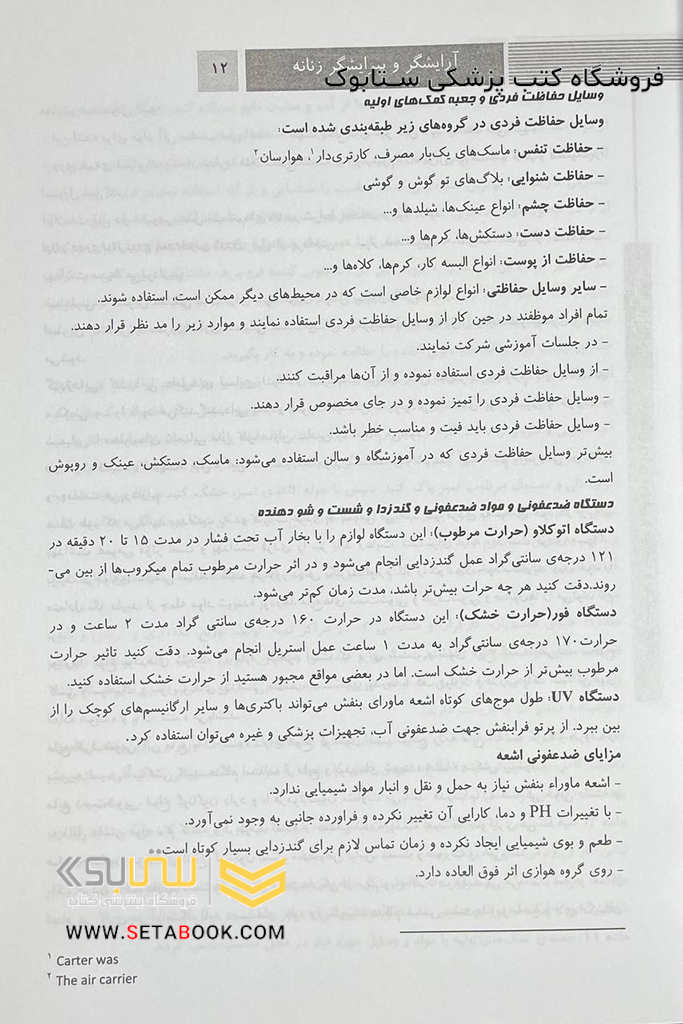 آرایشگر و پیرایشگر زنانه
۱۲
فروشگاه کتب پزشکی ستابوک
وسایل حفاظت فردی و جعبه کمک‌های اولیه
وسایل حفاظت فردی در گروه‌های زیر طبقه‌بندی شده است:
- حفاظت تنفس: ماسک‌های یک‌بار مصرف، کارتری‌دار۱، هوارسان۲
- حفاظت شنوایی: بلاگ‌های تو گوش و گوشی
- حفاظت چشم: انواع عینک‌ها، شیلدها و...
- حفاظت دست: دستکش‌ها، کرم‌ها و...
- حفاظت از پوست: انواع البسه کار، کرم‌ها، کلاه‌ها و...
- سایر وسایل حفاظتی: انواع لوازم خاصی است که در محیط‌های دیگر ممکن است، استفاده شوند.
تمام افراد موظفند در حین کار از وسایل حفاظت فردی استفاده نمایند و موارد زیر را مد نظر قرار دهند.
- در جلسات آموزشی شرکت نمایند.
- از وسایل حفاظت فردی استفاده نموده و از آن‌ها مراقبت کنند.
- وسایل حفاظت فردی را تمیز نموده و در جای مخصوص قرار دهند.
- وسایل حفاظت فردی باید فیت و مناسب خطر باشد.
بیش‌تر وسایل حفاظت فردی که در آموزشگاه و سالن استفاده می‌شود: ماسک، دستکش، عینک و روپوش
است.
دستگاه ضدعفونی و مواد ضدعفونی و گندزدا و شست و شو دهنده
دستگاه اتوکلاو (حرارت مرطوب): این دستگاه لوازم را با بخار آب تحت فشار در مدت ۱۵ تا ۲۰ دقیقه در
۱۲۱ درجه‌ی سانتی‌گراد عمل گندزدایی انجام می‌شود و در اثر حرارت مرطوب تمام میکروب‌ها از بین می-
روند.دقت کنید هر چه حرات بیش‌تر باشد، مدت زمان کم‌تر می‌شود.
دستگاه فور(حرارت خشک): این دستگاه در حرارت ۱۶۰ درجه‌ی سانتی گراد مدت ۲ ساعت و در
حرارت۱۷۰ درجه‌ی سانتی‌گراد به مدت ۱ ساعت عمل استریل انجام می‌شود. دقت کنید تاثیر حرارت
مرطوب بیش‌تر از حرارت خشک است. اما در بعضی مواقع مجبور هستید از حرارت خشک استفاده کنید.
دستگاه UV: طول موج‌های کوتاه اشعه ماورای بنفش می‌تواند باکتری‌ها و سایر ارگانیسم‌های کوچک را از
بین ببرد. از پرتو فرابنفش جهت ضدعفونی آب، تجهیزات پزشکی و غیره می‌توان استفاده کرد.
مزایای ضدعفونی اشعه
- اشعه ماوراء بنفش نیاز به حمل و نقل و انبار مواد شیمیایی ندارد.
- با تغییرات PH و دما، کارایی آن تغییر نکرده و فراورده جانبی به وجود نمی‌آورد.
- طعم و بوی شیمیایی ایجاد نکرده و زمان تماس لازم برای گندزدایی بسیار کوتاه است.
- روی گروه هوازی اثر فوق العاده دارد.
ستابوک
فروشگاه اینترنتی کتاب
WWW.SETABOOK.COM
۱ Carter was
۲ The air carrier